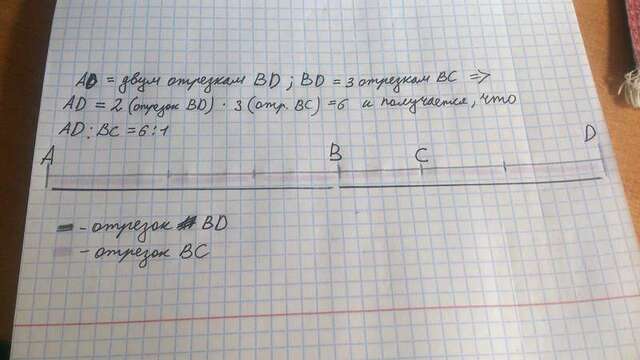 AD = двум отрезкам BD ; BD = 3 отрезкам BC =>
AD = 2 (отрезок BD) · 3 (отр. BC) = 6 и получается, что
AD : BC = 6 : 1
A B C D
- отрезок BD
- отрезок BC